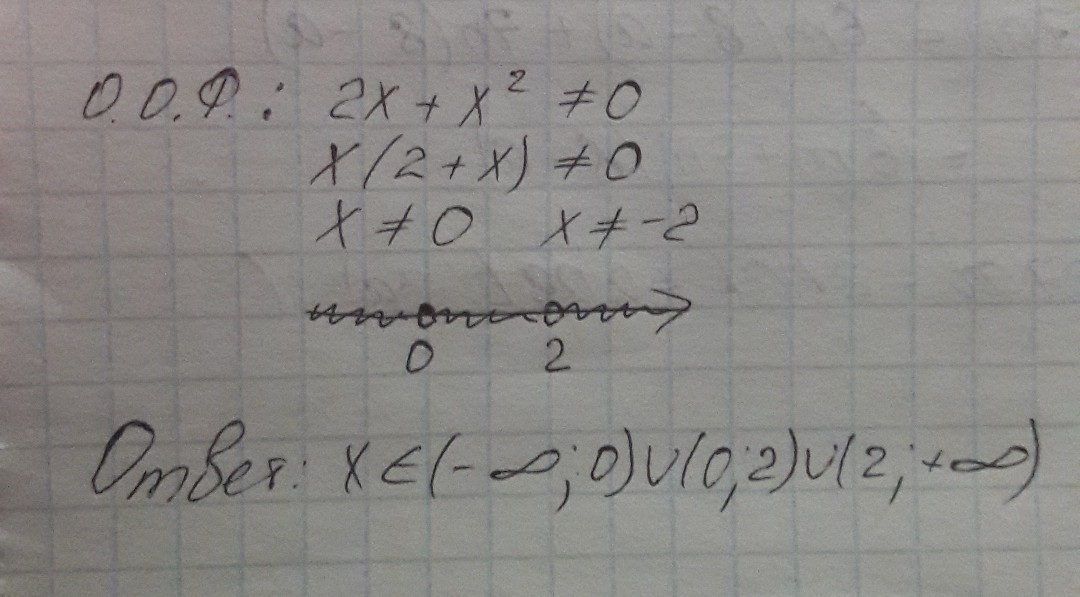 О.О.Ф.: 2x + x² ≠ 0
x(2 + x) ≠ 0
x ≠ 0 x ≠ -2
0 2
Ответ: x ∈ (-∞; 0) ∪ (0; 2) ∪ (2; +∞)